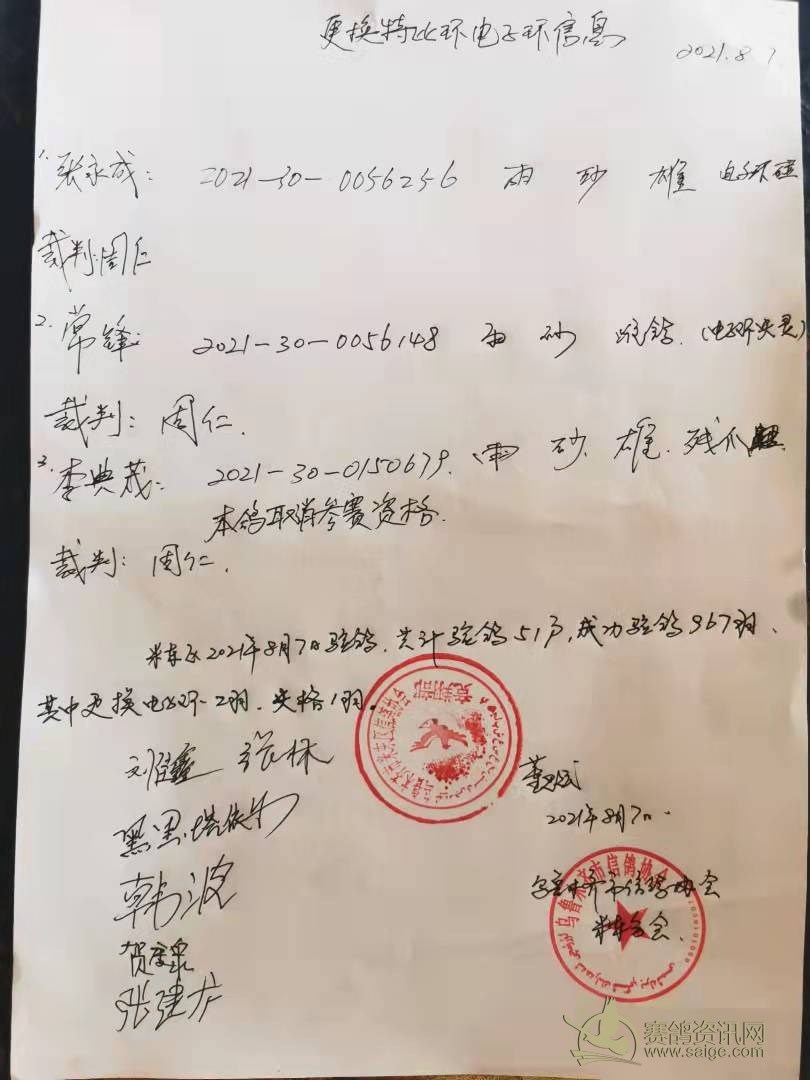 更换特比环电子环信息
2021.8.7
1. 张永成: 2021-30-0056256 雨 砂 雄 电子环
裁判:周仁
2. 常锋: 2021-30-0056148 雨 砂 (电子环失灵)
裁判: 周仁.
3. 李典茂: 2021-30-0150679. 雨 砂. 雄. 残爪
本鸽取消参赛资格.
裁判: 周仁.
米东区2021年8月7日验鸽. 共计验鸽51户, 成功验鸽967羽、
其中更换电子环2羽. 失格1羽。
张林
2021年8月7日.
韩波
乌鲁木齐市信鸽协会
米东分会.
张建
竞翔部
乌鲁木齐市信鸽协会
赛鸽资讯网
www.saige.com